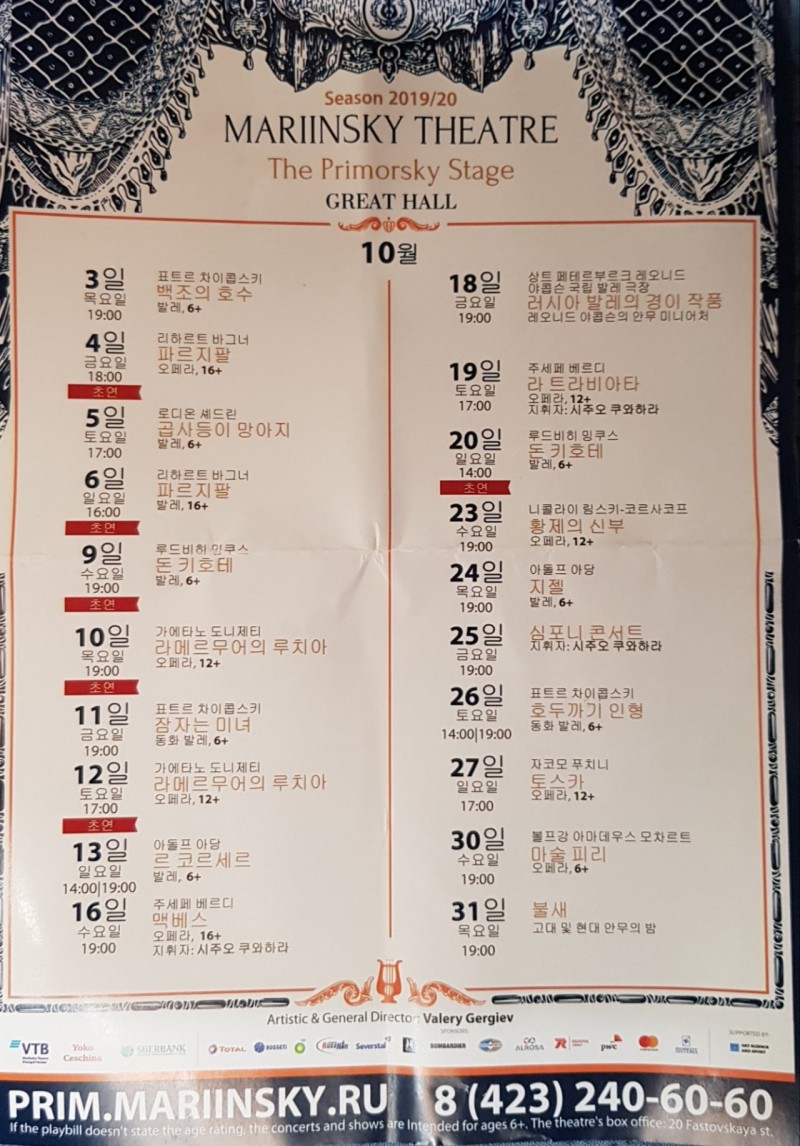 Season 2019/20
MARIINSKY THEATRE
The Primorsky Stage
GREAT HALL
10월
3일
목요일
19:00
표트르 차이콥스키
백조의 호수
발레, 6+
4일
금요일
18:00
초연
리하르트 바그너
파르지팔
오페라, 16+
5일
토요일
17:00
로디온 셰드린
곱사등이 망아지
발레, 6+
6일
일요일
16:00
초연
리하르트 바그너
파르지팔
발레, 16+
9일
수요일
19:00
초연
루드비히 밍쿠스
돈 키호테
발레, 6+
10일
목요일
19:00
초연
가에타노 도니제티
라메르무어의 루치아
오페라, 12+
11일
금요일
19:00
표트르 차이콥스키
잠자는 미녀
동화 발레, 6+
12일
토요일
17:00
초연
가에타노 도니제티
라메르무어의 루치아
오페라, 12+
13일
일요일
14:00|19:00
아돌프 아당
르 코르세르
발레, 6+
16일
수요일
19:00
주세페 베르디
맥베스
오페라, 16+
지휘자: 시주오 쿠와하라
18일
금요일
19:00
상트 페테르부르크 레오니드
야콥슨 국립 발레 극장
러시아 발레의 경이 작품
레오니드 야콥슨의 안무 미니어처
19일
토요일
17:00
주세페 베르디
라 트라비아타
오페라, 12+
지휘자: 시주오 쿠와하라
20일
일요일
14:00
초연
루드비히 밍쿠스
돈 키호테
발레, 6+
23일
수요일
19:00
니콜라이 림스키-코르사코프
황제의 신부
오페라, 12+
24일
목요일
19:00
아돌프 아당
지젤
발레, 6+
25일
금요일
19:00
심포니 콘서트
지휘자: 시주오 쿠와하라
26일
토요일
14:00|19:00
표트르 차이콥스키
호두까기 인형
동화 발레, 6+
27일
일요일
17:00
자코모 푸치니
토스카
오페라, 12+
30일
수요일
19:00
볼프강 아마데우스 모차르트
마술 피리
오페라, 6+
31일
목요일
19:00
불새
고대 및 현대 안무의 밤
Artistic & General Director Valery Gergiev
SPONSORS:
SUPPORTED BY:
VTB
Yoko
Ceschina
SBERBANK
TOTAL
ROSSETI
bp
Severstal
BOMBARDIER
ALROSA
pwc
mastercard
PRIM.MARIINSKY.RU 8 (423) 240-60-60
If the playbill doesn't state the age rating, the concerts and shows are Intended for ages 6+. The theatre's box office: 20 Fastovskaya st.